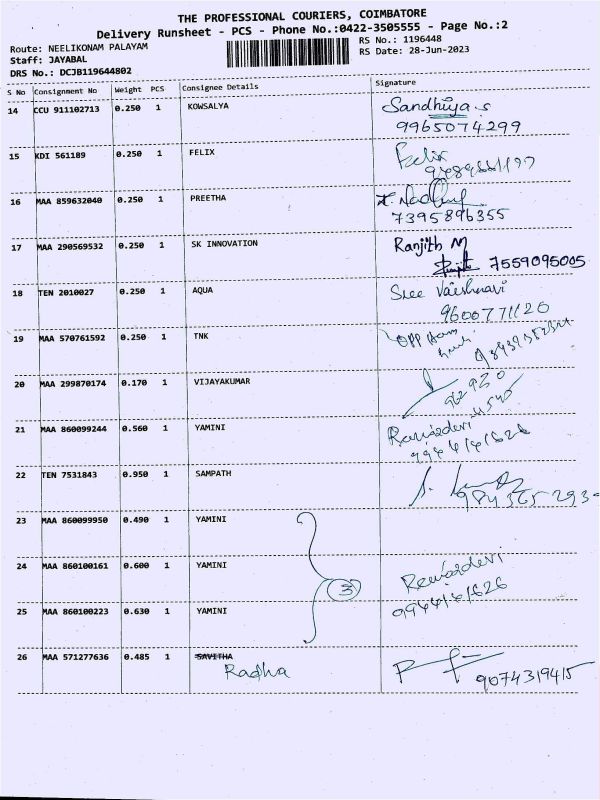 THE PROFESSIONAL COURIERS, COIMBATORE
Delivery Runsheet - PCS - Phone No.:0422-3505555 - Page No.:2
Route: NEELIKONAM PALAYAM RS No.: 1196448
Staff: JAYABAL RS Date: 28-Jun-2023
DRS No.: DCJB119644802
S No Consignment No Weight PCS Consignee Details Signature
14 CCU 911102713 0.250 1 KOWSALYA Sandhiya.s
9965074299
15 KDI 561189 0.250 1 FELIX Felix
16 MAA 859632040 0.250 1 PREETHA
7395896355
17 MAA 290569532 0.250 1 SK INNOVATION Ranjith M
7559095005
18 TEN 2010027 0.250 1 AQUA Sree Vaishnavi
9600771120
19 MAA 570761592 0.250 1 TNK OPP
20 MAA 299870174 0.170 1 VIJAYAKUMAR
21 MAA 860099244 0.560 1 YAMINI
22 TEN 7531843 0.950 1 SAMPATH
23 MAA 860099950 0.490 1 YAMINI
24 MAA 860100161 0.600 1 YAMINI
3
25 MAA 860100223 0.630 1 YAMINI
26 MAA 571277636 0.485 1 SAVITHA
Radha 9074319415